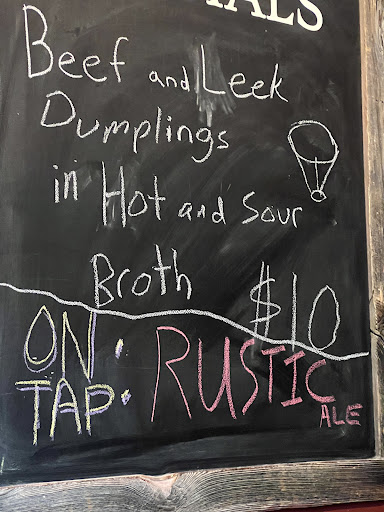 Beef and Leek
Dumplings
in Hot and Sour
Broth $10
ON
TAP: RUSTIC
ALE